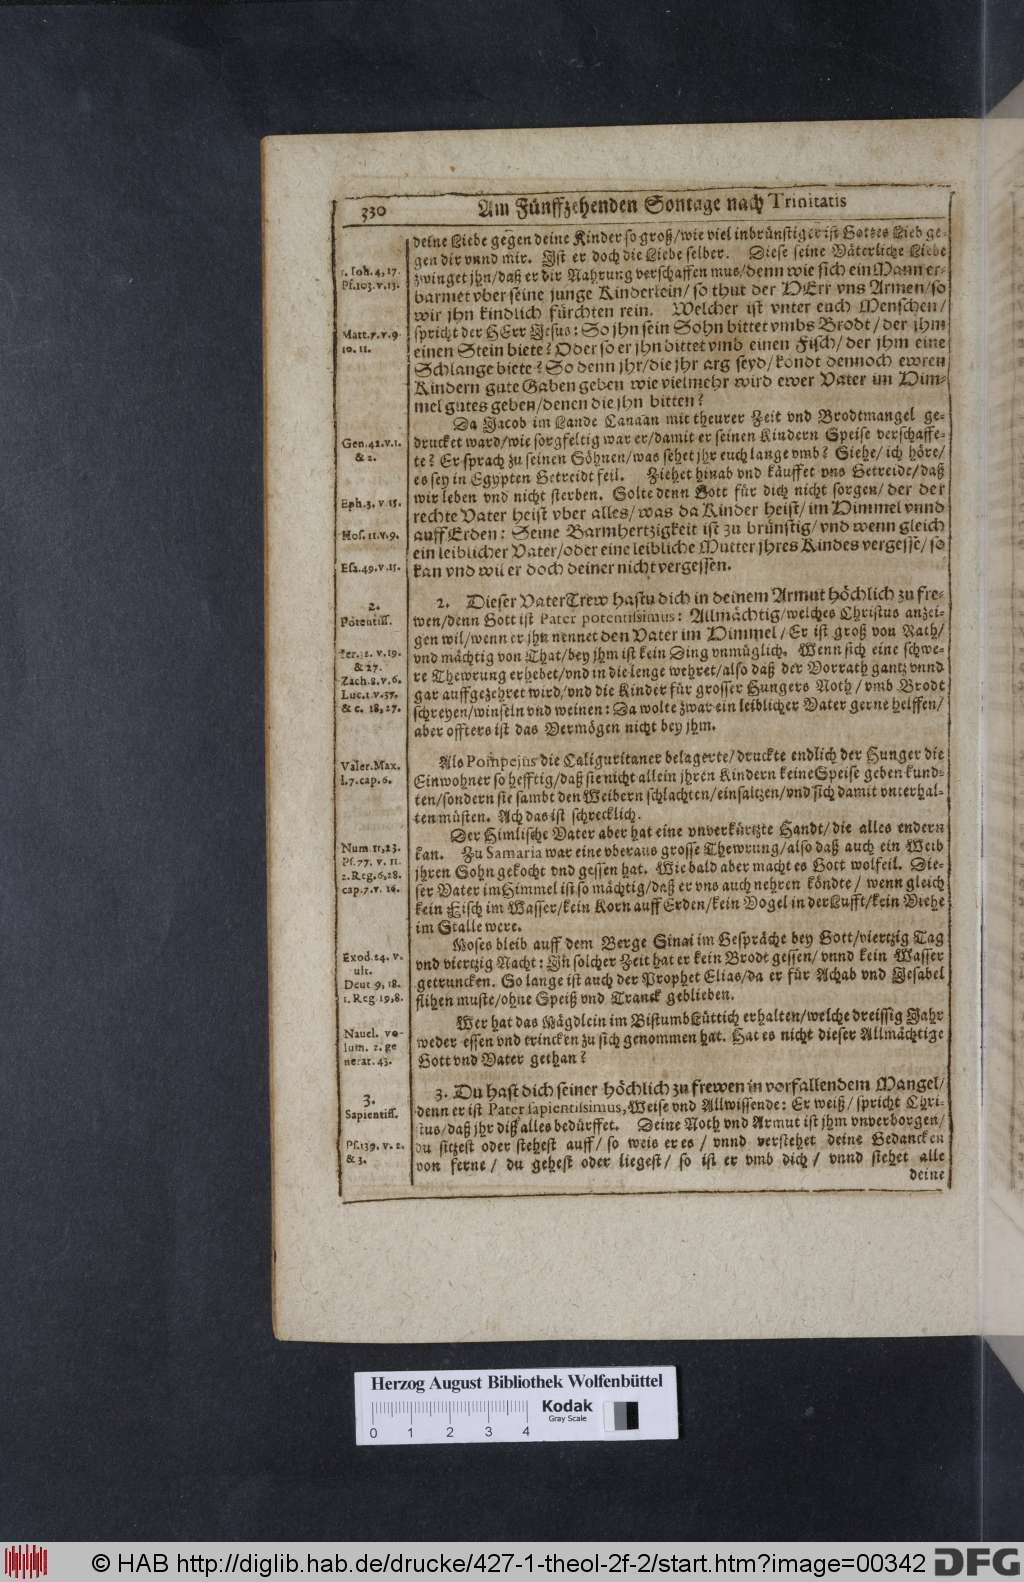 330
Am Fünffzehenden Sontage nach Trinitatis
deine Liebe gegen deine Kinder so groß/wie viel inbrünstiger ist Gottes Lieb ge-
gen dir vnnd mir. Ist er doch die Liebe selber. Diese seine Väterliche Liebe
zwinget jhn/daß er dir Nahrung verschaffen mus/denn wie sich ein Mann er-
barmet vber seine junge Kinderlein/so thut der HErr vns Armen/so
wir jhn kindlich fürchten rein. Welcher ist vnter euch Menschen/
spricht der HErr Jesus: So jhn sein Sohn bittet vmbs Brodt/der jhm
einen Stein biete? Oder so er jhn bittet vmb einen Fisch/der jhm eine
Schlange biete? So denn jhr/die jhr arg seyd/köndt dennoch ewren
Kindern gute Gaben geben wie vielmehr wird ewer Vater im Him-
mel gutes geben/denen die jhn bitten?
Da Jacob im Lande Canaan mit theurer Zeit vnd Brodtmangel ge-
drucket ward/wie sorgfeltig war er/damit er seinen Kindern Speise verschaffe-
te? Er sprach zu seinen Söhnen/was sehet jhr euch lange vmb? Siehe/ich höre/
es sey in Egypten Getreidt feil. Ziehet hinab vnd käuffet vns Getreide/daß
wir leben vnd nicht sterben. Solte denn Gott für dich nicht sorgen/der der
rechte Vater heist vber alles/was da Kinder heist/im Himmel vnnd
auff Erden: Seine Barmhertzigkeit ist zu brünstig/vnd wenn gleich
ein leiblicher Vater/oder eine leibliche Mutter jhres Kindes vergesse/so
kan vnd wil er doch deiner nicht vergessen.
2. Dieser VaterTrew hastu dich in deinem Armut höchlich zu fre-
wen/denn Gott ist Pater potentissimus: Allmächtig/welches Christus anzei-
gen wil/wenn er jhn nennet den Vater im Himmel/Er ist groß von Rath/
vnd mächtig von That/bey jhm ist kein Ding vnmüglich. Wenn sich eine schwe-
re Thewrung erhebet/vnd in die lenge wehret/also daß der Vorrath gantz vnnd
gar auffgezehret wird/vnd die Kinder für grosser Hungers Noth/vmb Brodt
schreyen/winseln vnd weinen: Da wolte zwar ein leiblicher Vater gerne helffen/
aber offters ist das Vermögen nicht bey jhm.
Als Pompejus die Caliguritaner belagerte/druckte endlich der Hunger die
Einwohner so hefftig/daß sie nicht allein jhren Kindern keine Speise geben kund-
ten/sondern sie sambt den Weibern schlachten/einsaltzen/vnd sich damit vnterhal-
ten müsten. Ach das ist schrecklich.
Der Himlische Vater aber hat eine vnverkürtzte Handt/die alles endern
kan. Zu Samaria war eine vberaus grosse Thewrung/also daß auch ein Weib
jhren Sohn gekocht vnd gessen hat. Wie bald aber macht es Gott wolfeil. Die-
ser Vater im Himmel ist so mächtig/daß er vns auch nehren köndte/wenn gleich
kein Fisch im Wasser/kein Korn auff Erden/kein Vogel in der Lufft/kein Viehe
im Stalle were.
Moses bleib auff dem Berge Sinai im Gespräche bey Gott/viertzig Tag
vnd viertzig Nacht: In solcher Zeit hat er kein Brodt gessen/vnnd kein Wasser
getruncken. So lange ist auch der Prophet Elias/da er für Achab vnd Jesabel
flihen muste/ohne Speiß vnd Tranck geblieben.
Wer hat das Mägdlein im Bistumb Lüttich erhalten/welche dreissig Jahr
weder essen vnd trincken zu sich genommen hat. Hat es nicht dieser Allmächtige
Gott vnd Vater gethan?
3. Du hast dich seiner höchlich zu frewen in vorfallendem Mangel/
denn er ist Pater sapientissimus, Weise vnd Allwissende: Er weiß/spricht Chri-
stus/daß jhr diß alles bedürffet. Deine Noth vnd Armut ist jhm vnverborgen/
du sitzest oder stehest auff/so weis er es/vnnd verstehet deine Gedancken
von ferne/du gehest oder liegest/so ist er vmb dich/vnnd siehet alle
deine
1. Ioh. 4, 17.
Ps. 103. v. 13.
Matt. 7. v. 9.
10. 11.
Gen. 42. v. 1.
& 2.
Eph. 3. v. 15.
Hos. 11. v. 9.
Esa. 49. v. 15.
2.
Potentiss.
Ier. 32. v. 19.
& 27.
Zach. 8. v. 6.
Luc. 1. v. 37.
& c. 18, 27.
Valer. Max.
l. 7. cap. 6.
Num. 11, 23.
Ps. 77. v. 11.
2. Reg. 6, 28.
cap. 7. v. 16.
Exod. 24. v.
ult.
Deut. 9, 18.
1. Reg. 19, 8.
Naucl. vo-
lum. 2. ge
nerat. 43.
3.
Sapientiss.
Ps. 139. v. 2.
& 3.
Herzog August Bibliothek Wolfenbüttel
0 1 2 3 4
Kodak
Gray Scale
© HAB http://diglib.hab.de/drucke/427-1-theol-2f-2/start.htm?image=00342
DFG